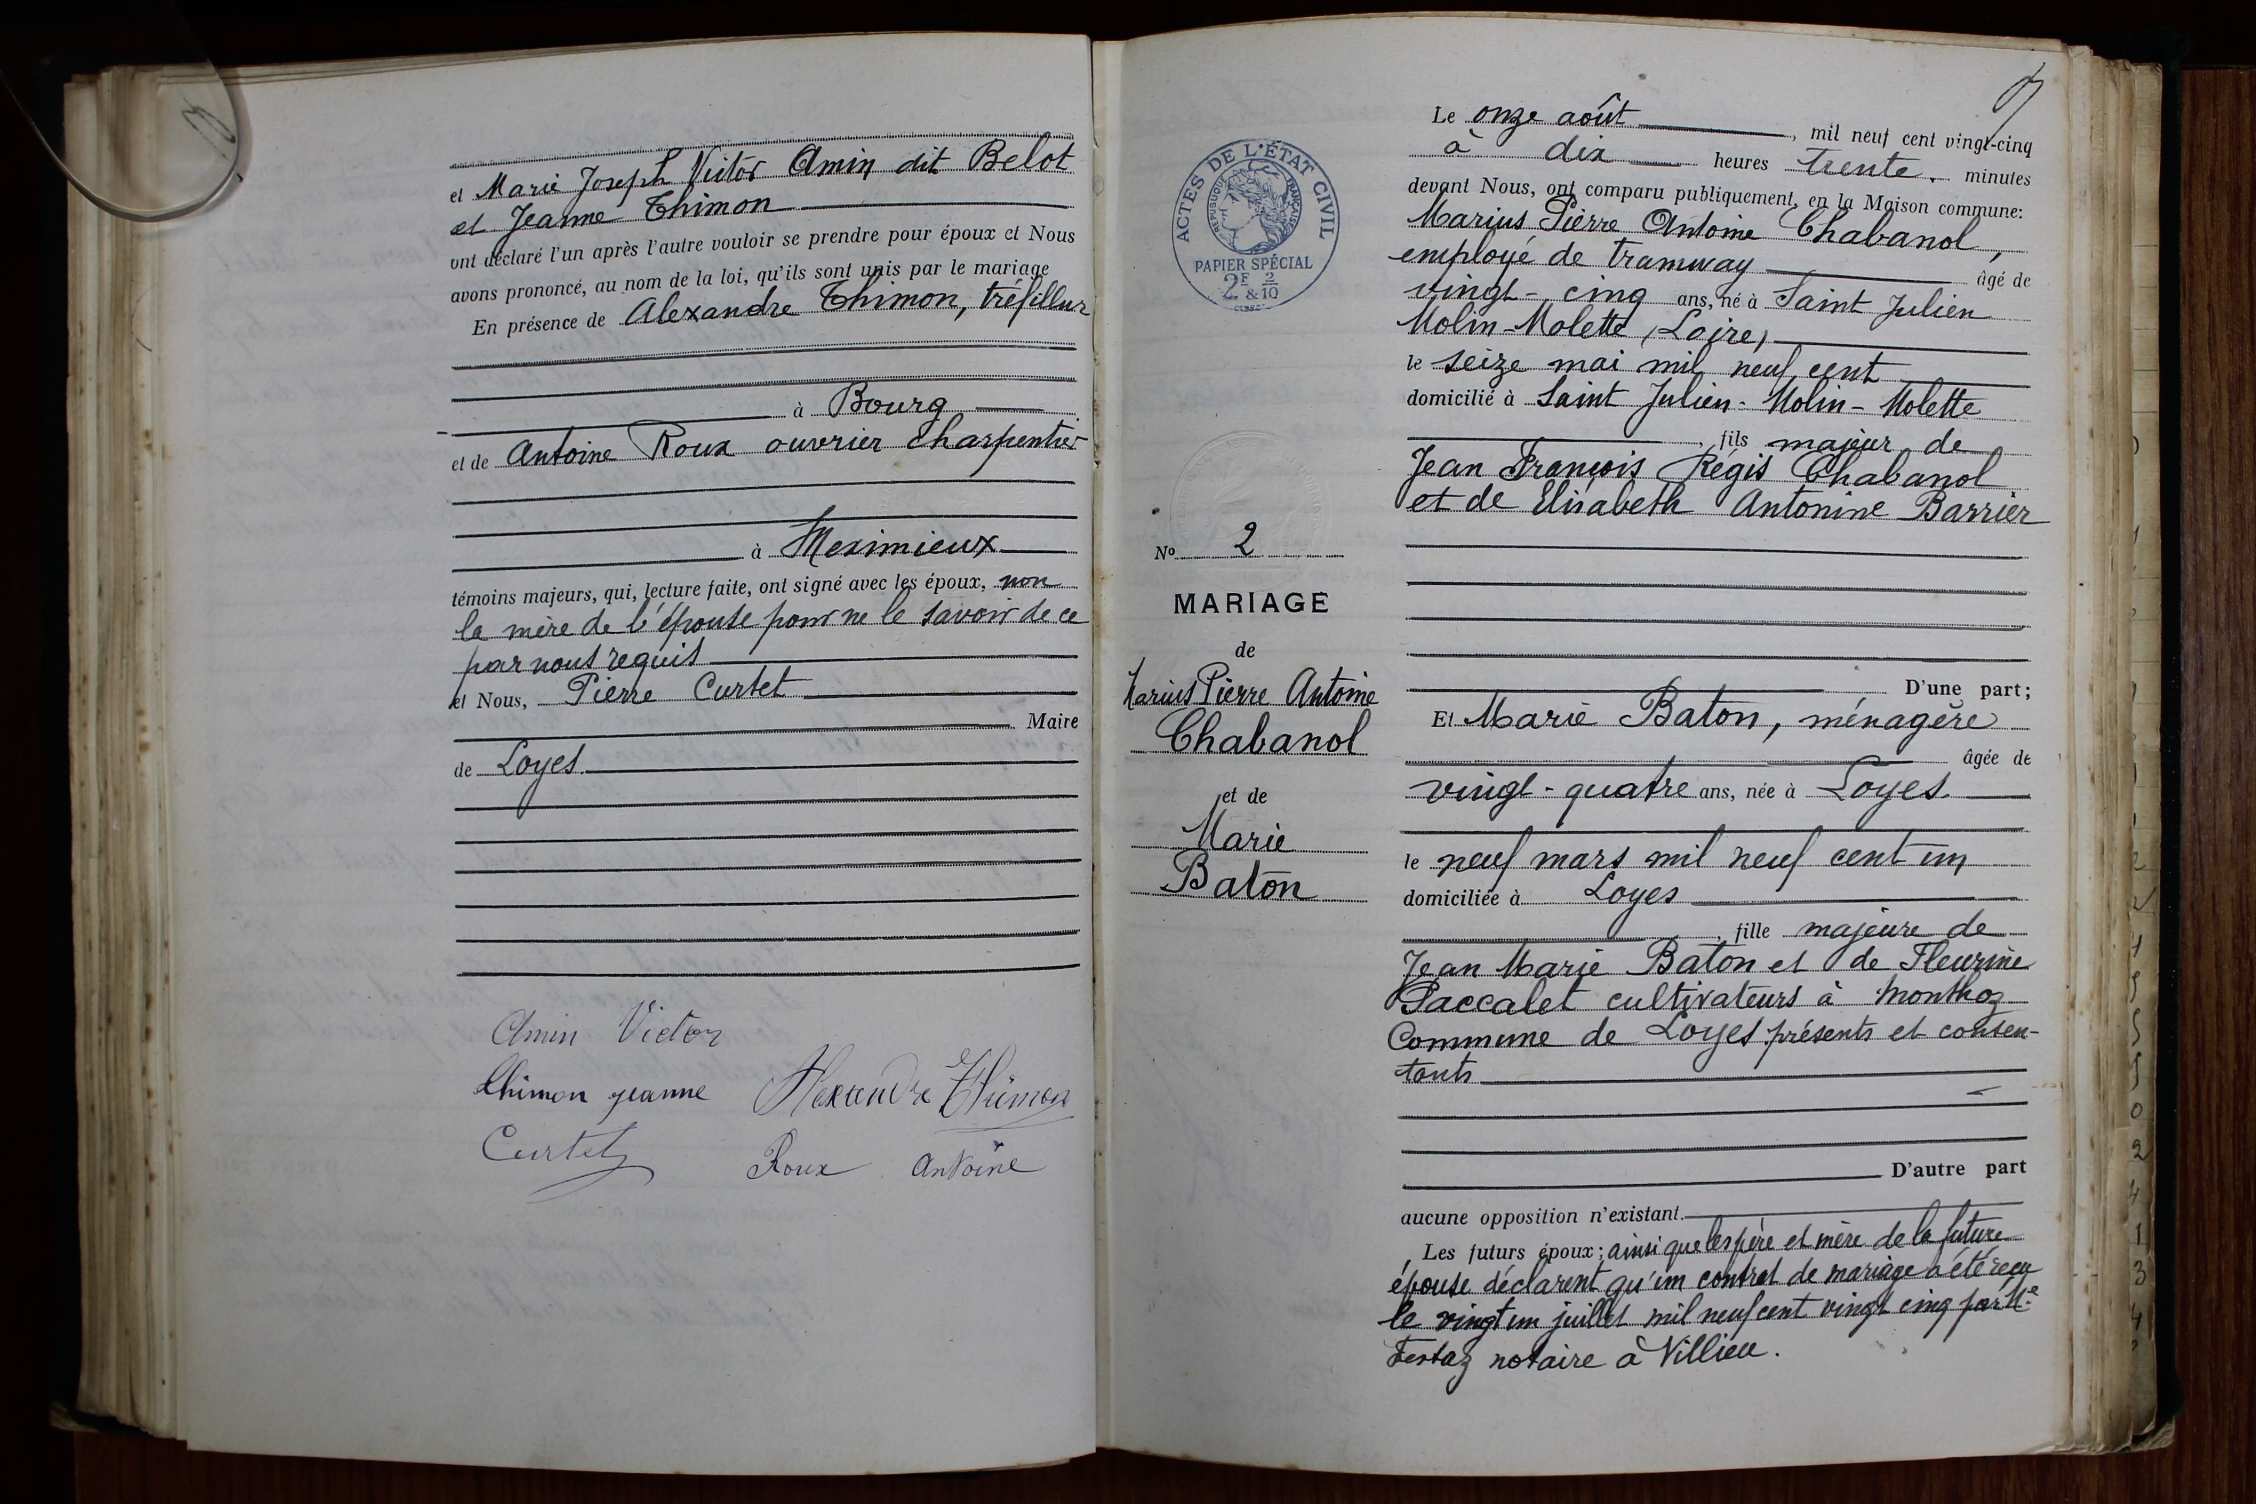 et Marie Joseph Victor Amin dit Belot
et Jeanne Thimon
ont déclaré l'un après l'autre vouloir se prendre pour époux et Nous
avons prononcé, au nom de la loi, qu'ils sont unis par le mariage
En présence de Alexandre Thimon, tréfilleur
à Bourg
et de Antoine Roux ouvrier charpentier
à Meximieux
témoins majeurs, qui, lecture faite, ont signé avec les époux, non
la mère de l'épouse pour ne le savoir de ce
par nous requis
et Nous, Pierre Curtet
Maire
de Loyes
Amin Victor
Thimon jeanne Alexandre Thimon
Curtet Roux Antoine
ACTES DE L'ÉTAT CIVIL
RÉPUBLIQUE FRANÇAISE
PAPIER SPÉCIAL
2F & 2/10
No 2
MARIAGE
de
Marius Pierre Antoine
Chabanol
et de
Marie
Baton
Le onze août, mil neuf cent vingt-cinq
à dix heures trente minutes
devant Nous, ont comparu publiquement, en la Maison commune:
Marius Pierre Antoine Chabanol,
employé de tramway âgé de
vingt-cinq ans, né à Saint Julien
Molin-Molette (Loire)
le seize mai mil neuf cent
domicilié à Saint Julien-Molin-Molette
, fils majeur de
Jean François Régis Chabanol
et de Elisabeth Antonine Barrier
D'une part;
Et Marie Baton, ménagère
âgée de
vingt-quatre ans, née à Loyes
le neuf mars mil neuf cent un
domiciliée à Loyes
, fille majeure de
Jean Marie Baton et de Fleurine
Paccalet cultivateurs à Monthoz
Commune de Loyes présents et consen-
tants
D'autre part
aucune opposition n'existant.
Les futurs époux; ainsi que les père et mère de la future
épouse déclarent qu'un contrat de mariage a été reçu
le vingt un juillet mil neuf cent vingt cinq par Me
Festaz notaire à Villieu.